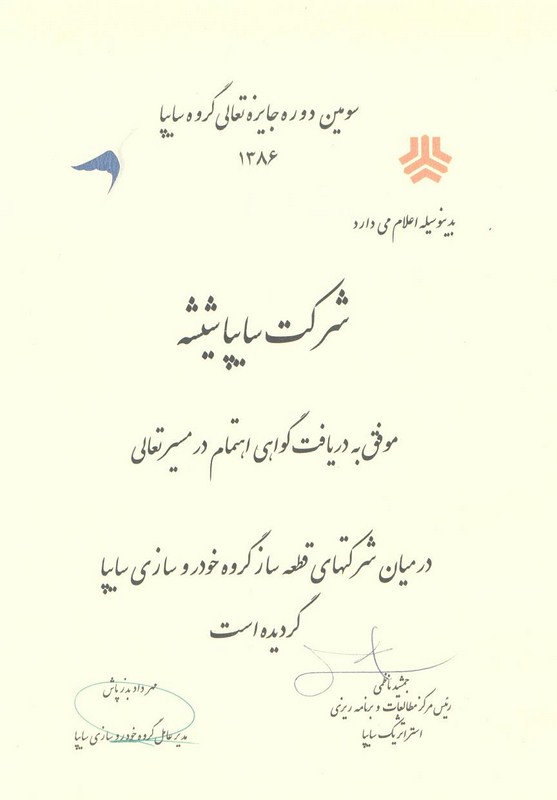 سومین دوره جایزه تعالی گروه سایپا
۱۳۸۶
بدینوسیله اعلام می دارد
شرکت سایپا شیشه
موفق به دریافت گواهی اهتمام در مسیر تعالی
در میان شرکتهای قطعه ساز گروه خودرو سازی سایپا
گردیده است
جمشید ناظمی
رئیس مرکز مطالعات و برنامه ریزی
استراتژیک سایپا
مهرداد بذرپاش
مدیر عامل گروه خودرو سازی سایپا